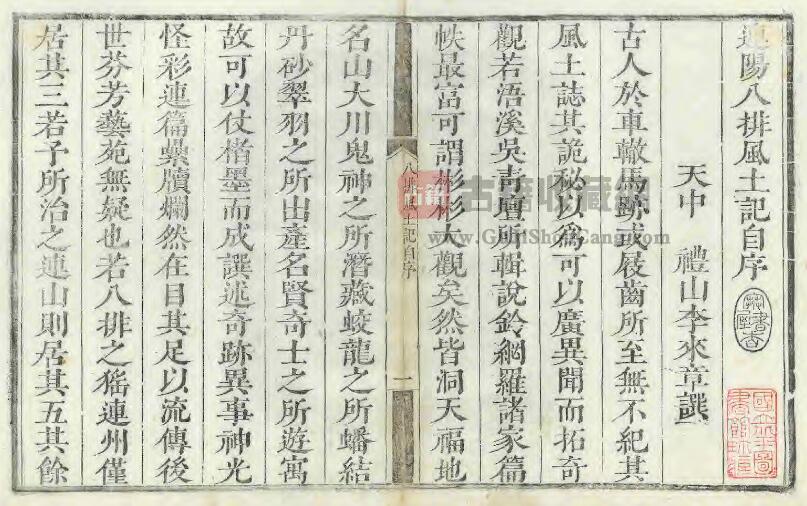 連陽八排風土記自序
天中 禮山李來章譔
古人於車轍馬跡或屐齒所至無不紀其
風土誌其詭秘以爲可以廣異聞而拓奇
觀若浯溪吳青壇所輯說鈴網羅諸家篇
帙最富可謂彬彬大觀矣然皆洞天福地
八排風土記自序
一
名山大川鬼神之所潛藏蛟龍之所蟠結
丹砂翠羽之所出產名賢奇士之所遊寓
故可以仗楮墨而成譔述奇跡異事神光
怪彩連篇纍牘爛然在目其足以流傳後
世芬芳藝苑無疑也若八排之猺連州僅
居其三若予所治之連山則居其五其餘
古籍
古籍收藏網
www.GuJiShouCang.com